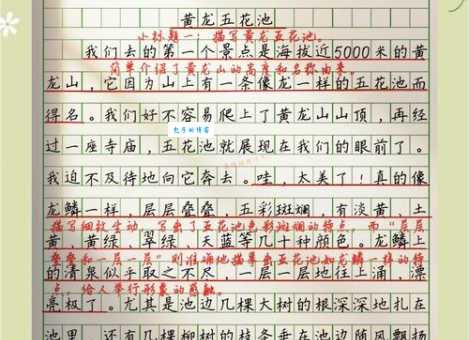 黄龙五花池
小标题一：描写黄龙五花池。
我们去的第一个景点是海拔近5000米的黄
简单介绍了黄龙山的高度和名称由来。
龙山，它因为山上有一条像龙一样的五花池而
得名。我们好不容易爬上了黄龙山山顶，再经
过一座寺庙，五花池就展现在我们的眼前了。
我迫不及待地向它奔去。哇，太美了！真的像
龙鳞一样，层层叠叠，五彩斑斓，有淡黄、土
描写细致生动，写出了五花池色彩斑斓的特点，而“层层
黄，黄绿、翠绿、天蓝等几十种颜色。龙鳞上
叠叠和一层一层”则准确地描摹出五花池如龙鳞一样的特
的清泉似乎取之不尽，一层一层地往上涌，漂
点，给人举行形象的感触。
亮极了。尤其是池边几棵大树的根深深地扎在
池里，还有几棵柳树的枝条垂在池边随风飘扬